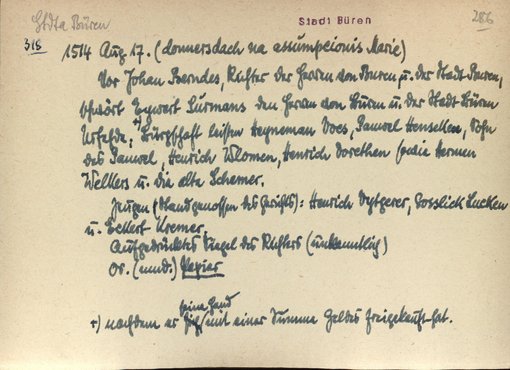 Stdta Büren
Stadt Büren
286
318
1514 Aug 17. (donnersdach na assumpcionis Marie)
Vor Johan Berndes, Richter der Herren von Buren u. der Stadt Buren,
schwört Eywert Surmans den Herren von Büren u. der Stadt Büren
Urfehde, +) Bürgschaft leisten Heyneman Voes, Pauwel Henselken, Sohn
des Pauwel, Henrich Wlomen, Henrich Dorethen sowie Hermen
Welkers u. die alte Schemer.
Zeugen (Standgenossen des Gerichts): Henrich Dytgerer, Gosslick Lucken
u. Eckert Kremer.
Aufgedrücktes Siegel des Richters (unkenntlich)
Or. (mnd.) Papier
+) nachdem er seine Hand mit einer Summe Geldes freigekauft hat.